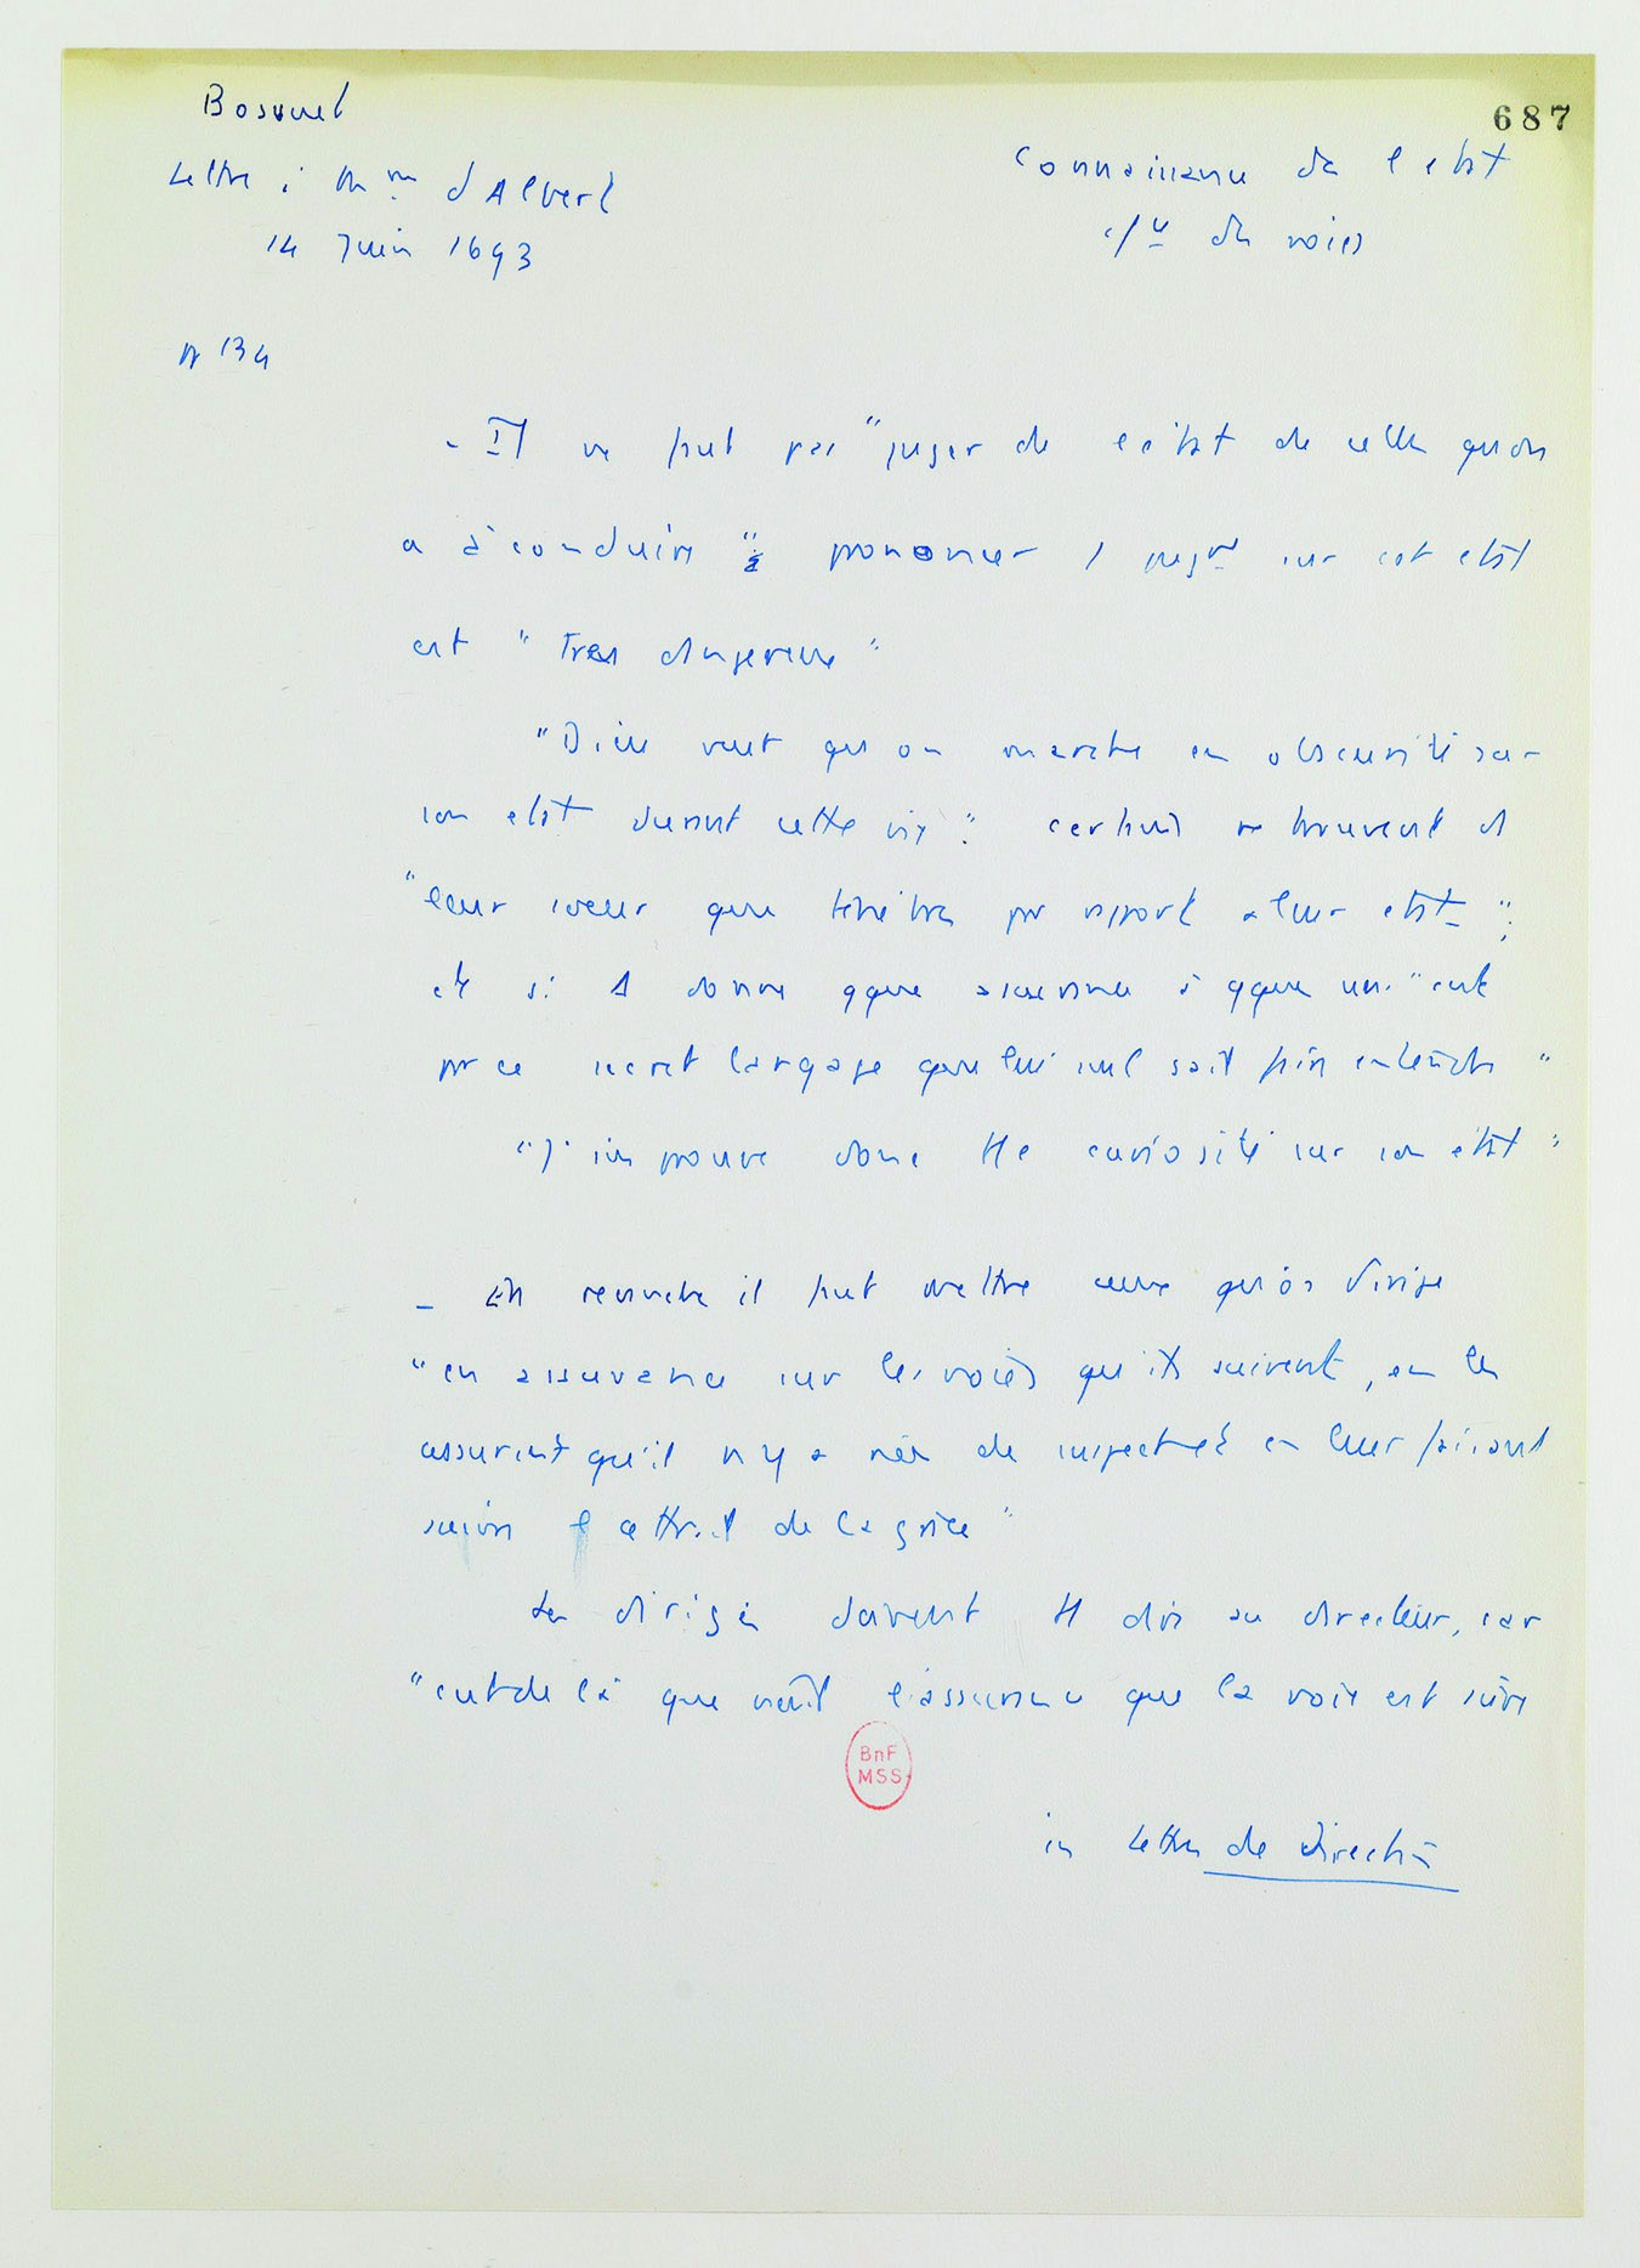 Bossuet
687
Lettre à Mme d'Albert
Connaissance de l'état
14 Juin 1693
des voies
N 134
- Il ne faut pas "juger de l'état de celles qu'on
a à conduire"; prononcer 1 jugt sur cet état
est "très dangereux"
"Dieu veut qu'on marche en obscurité sur
son état durant cette vie": certains ne trouvent ds
"leur cœur que ténèbres par rapport à leur état";
et si donne qque assurance à qques uns "c'est
par ce secret langage que lui seul sait faire entendre"
"J'improuve donc tte curiosité sur son état"
- En revanche il faut mettre ceux qu'on dirige
"en assurance sur les voies qu'ils suivent, en les
assurant qu'il n'y a rien de suspect et en leur faisant
suivre l'attrait de la grâce"
Les dirigés doivent tt dire au directeur, car
"c'est de là que naît l'assurance que la voie est sûre
BnF
MSS
in Lettres de direction